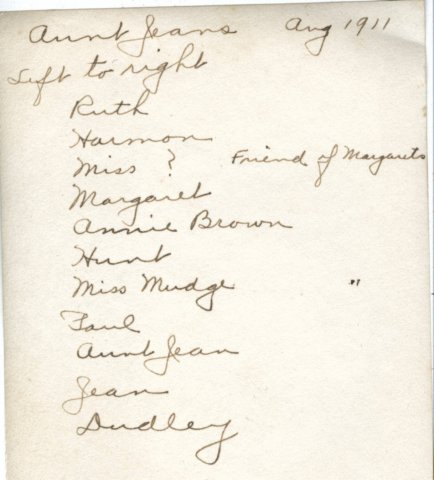 Aunt Jeans Aug 1911
Left to right
Ruth
Harmon
Miss ? Friend of Margarets
Margaret
Annie Brown
Hunt
Miss Mudge "
Paul
Aunt Jean
Jean
Dudley